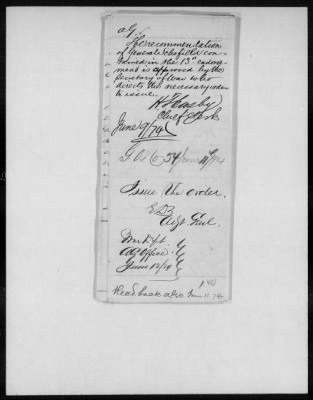 A.G.
The recommendation
of General Schofield con-
tained in the 13th endorse-
ment is approved by the
Secretary of War who
directs the necessary order
to issue.
H.T. Crosby
Chief Clerk
June 9/74
Issue the order.
Adjt. Genl.
War Dept.
A.G. Office
June 12/74
Read back also June 11. 74